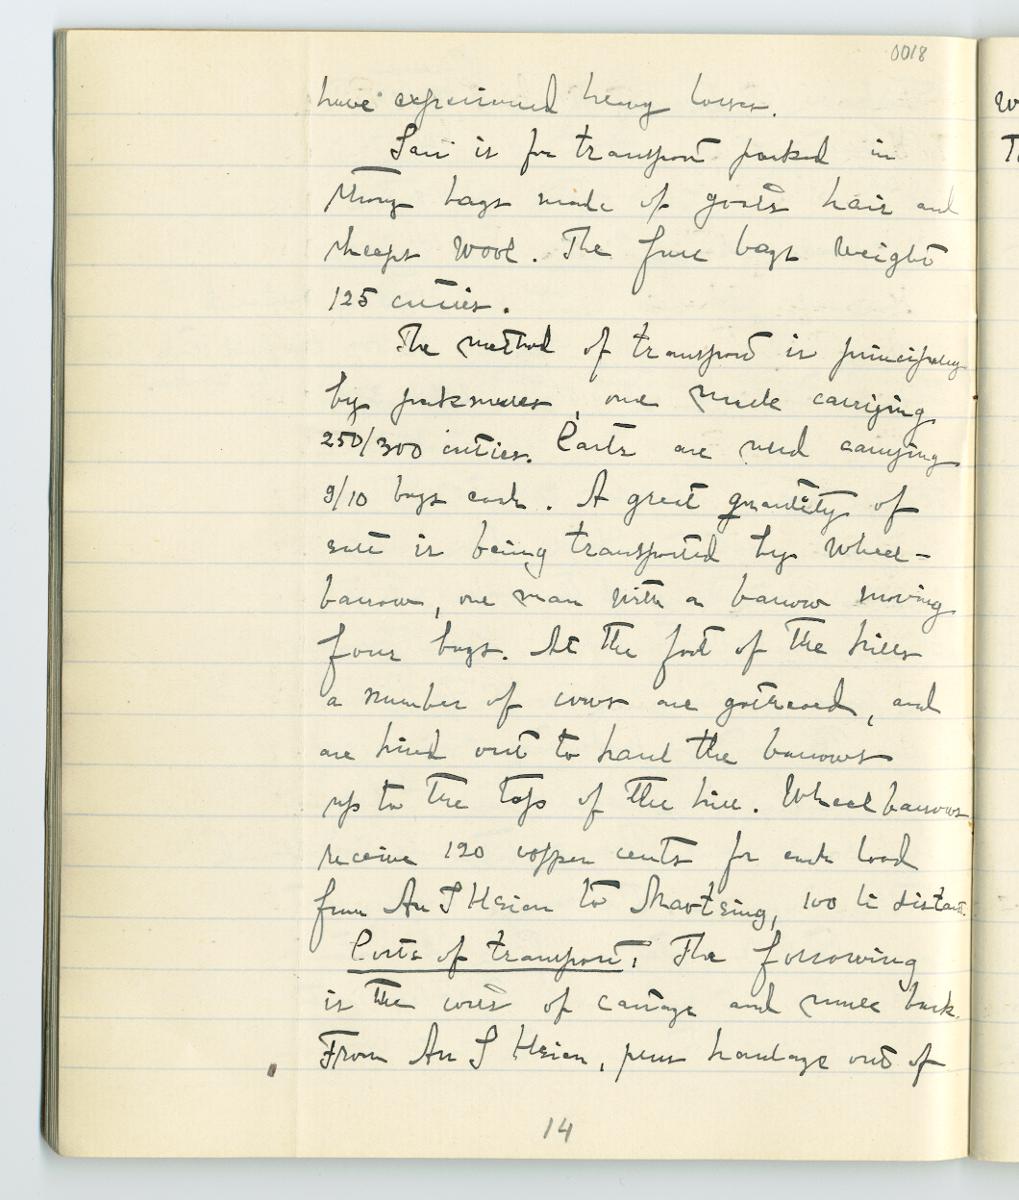 0018
have experienced heavy losses.
Salt is for transport packed in
strong bags made of goats hair and
sheeps wool. The full bags weight
125 catties.
The method of transport is principaly
by packmules, one mule carrying
250/300 catties. Carts are used carrying
9/10 bags each. A great quantity of
salt is being transported by wheel-
barrow, one man with a barrow moving
four bags. At the foot of the hills
a number of cows are gathered, and
are hired out to haul the barrows
up to the top of the hill. Wheelbarrows
receive 120 copper cents for each load
from An I Hsien to Maotsing, 100 li distant.
Costs of transport. The following
is the cost of cartage and mule back.
From An I Hsien, plus haulage out of
14
W
T